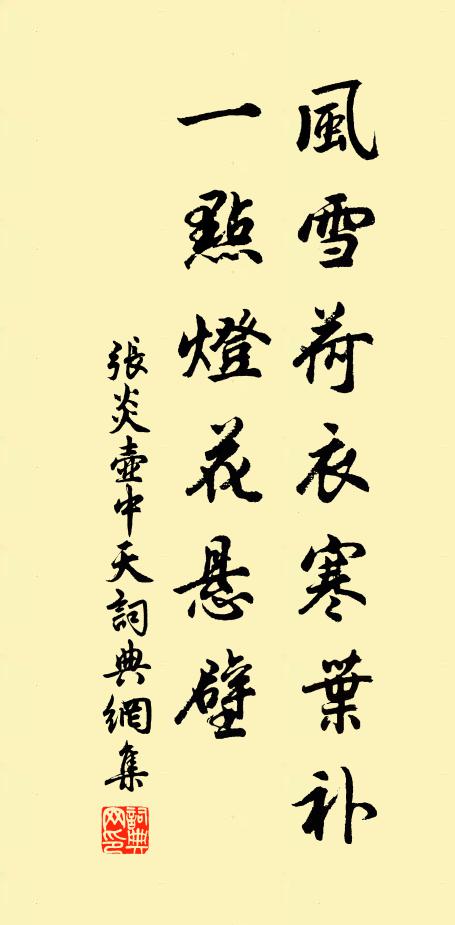 風雪荷衣寒葉补
一點燈花悬壁
張炎壺中天詞典網集
詞典网印